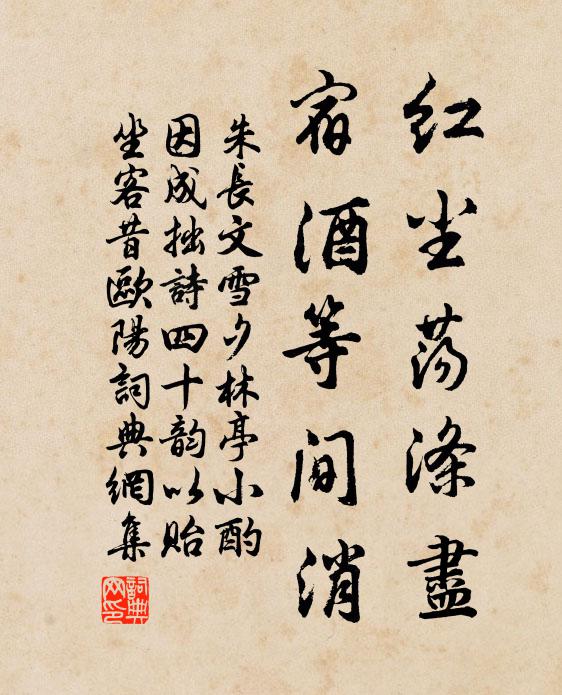 红尘荡涤盡
宿酒等闲消
朱長文雪夕林亭小酌
因成拙詩四十韵以贻
坐客昔歐陽詞典網集
詞典网印